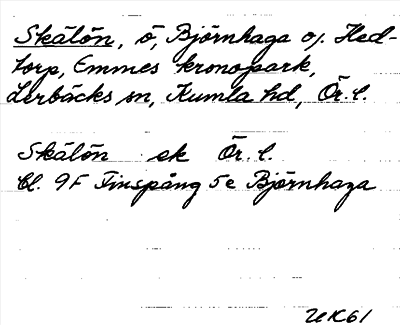 Skälön, ö, Björnhaga o. Hed-
torp, Emmes kronopark,
Lerbäcks sn, Kumla hd, Ör. l.
Skälön ek Ör. l.
Bl. 9F Finspång 5e Björnhaga
UK61